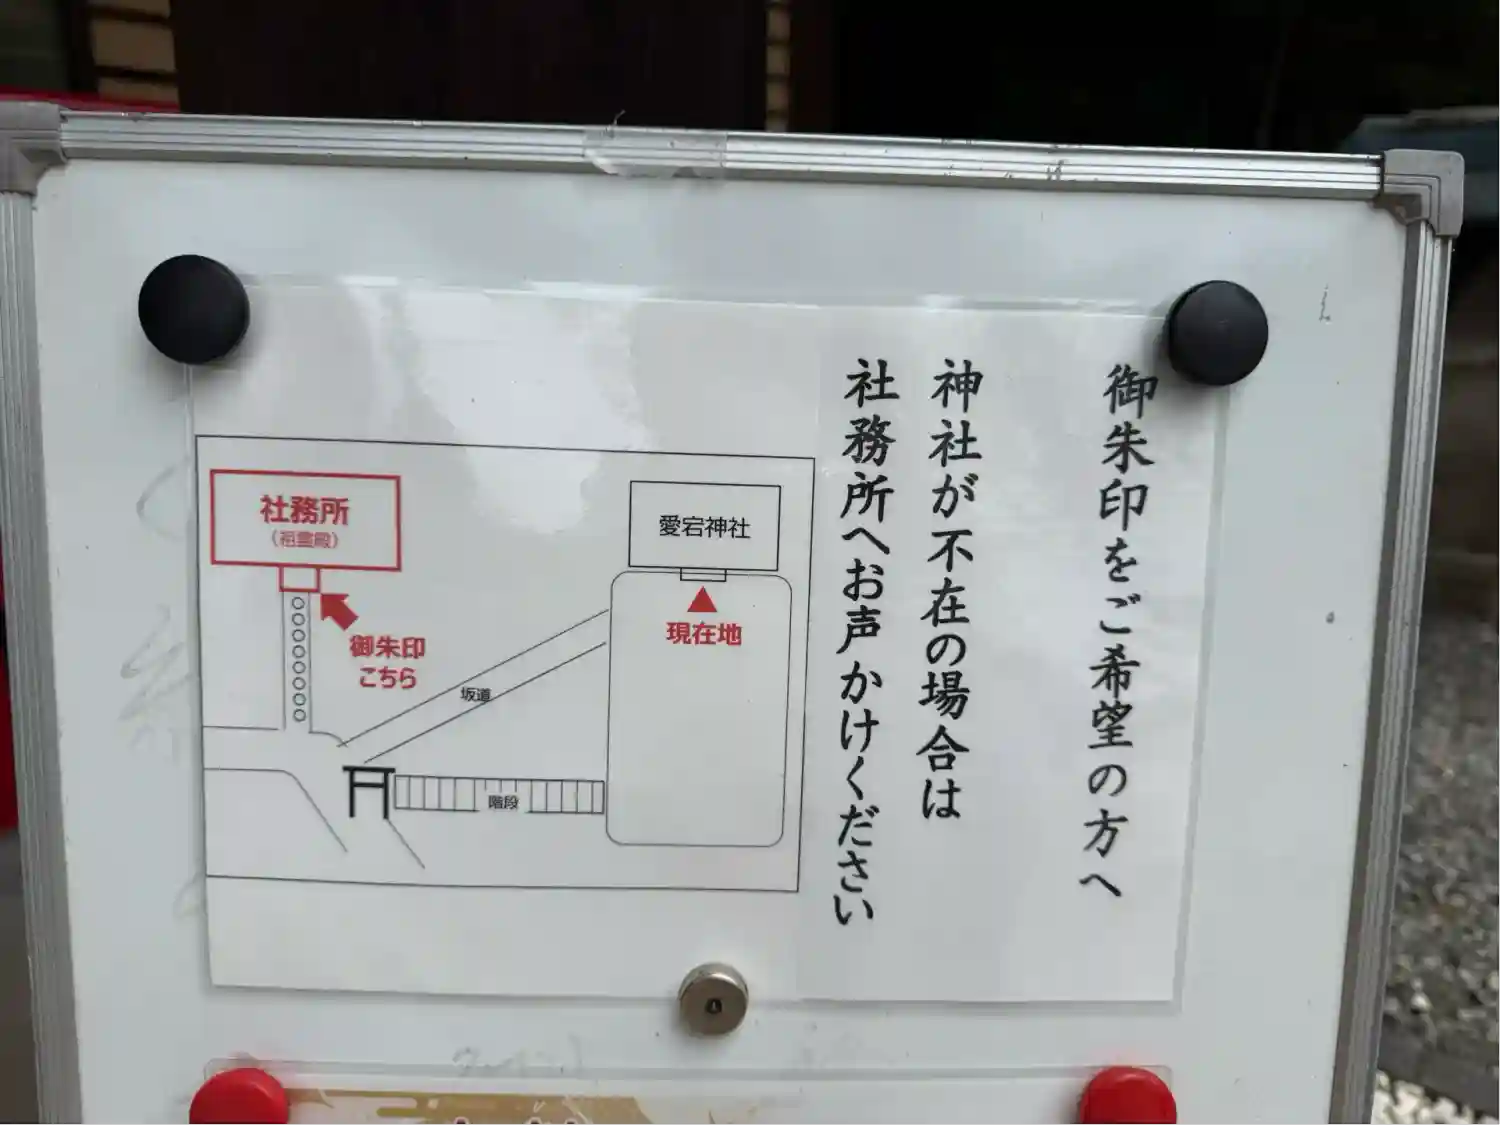 御朱印をご希望の方へ
神社が不在の場合は
社務所へお声かけください
社務所
(祖霊殿)
御朱印
こちら
愛宕神社
現在地
坂道
階段